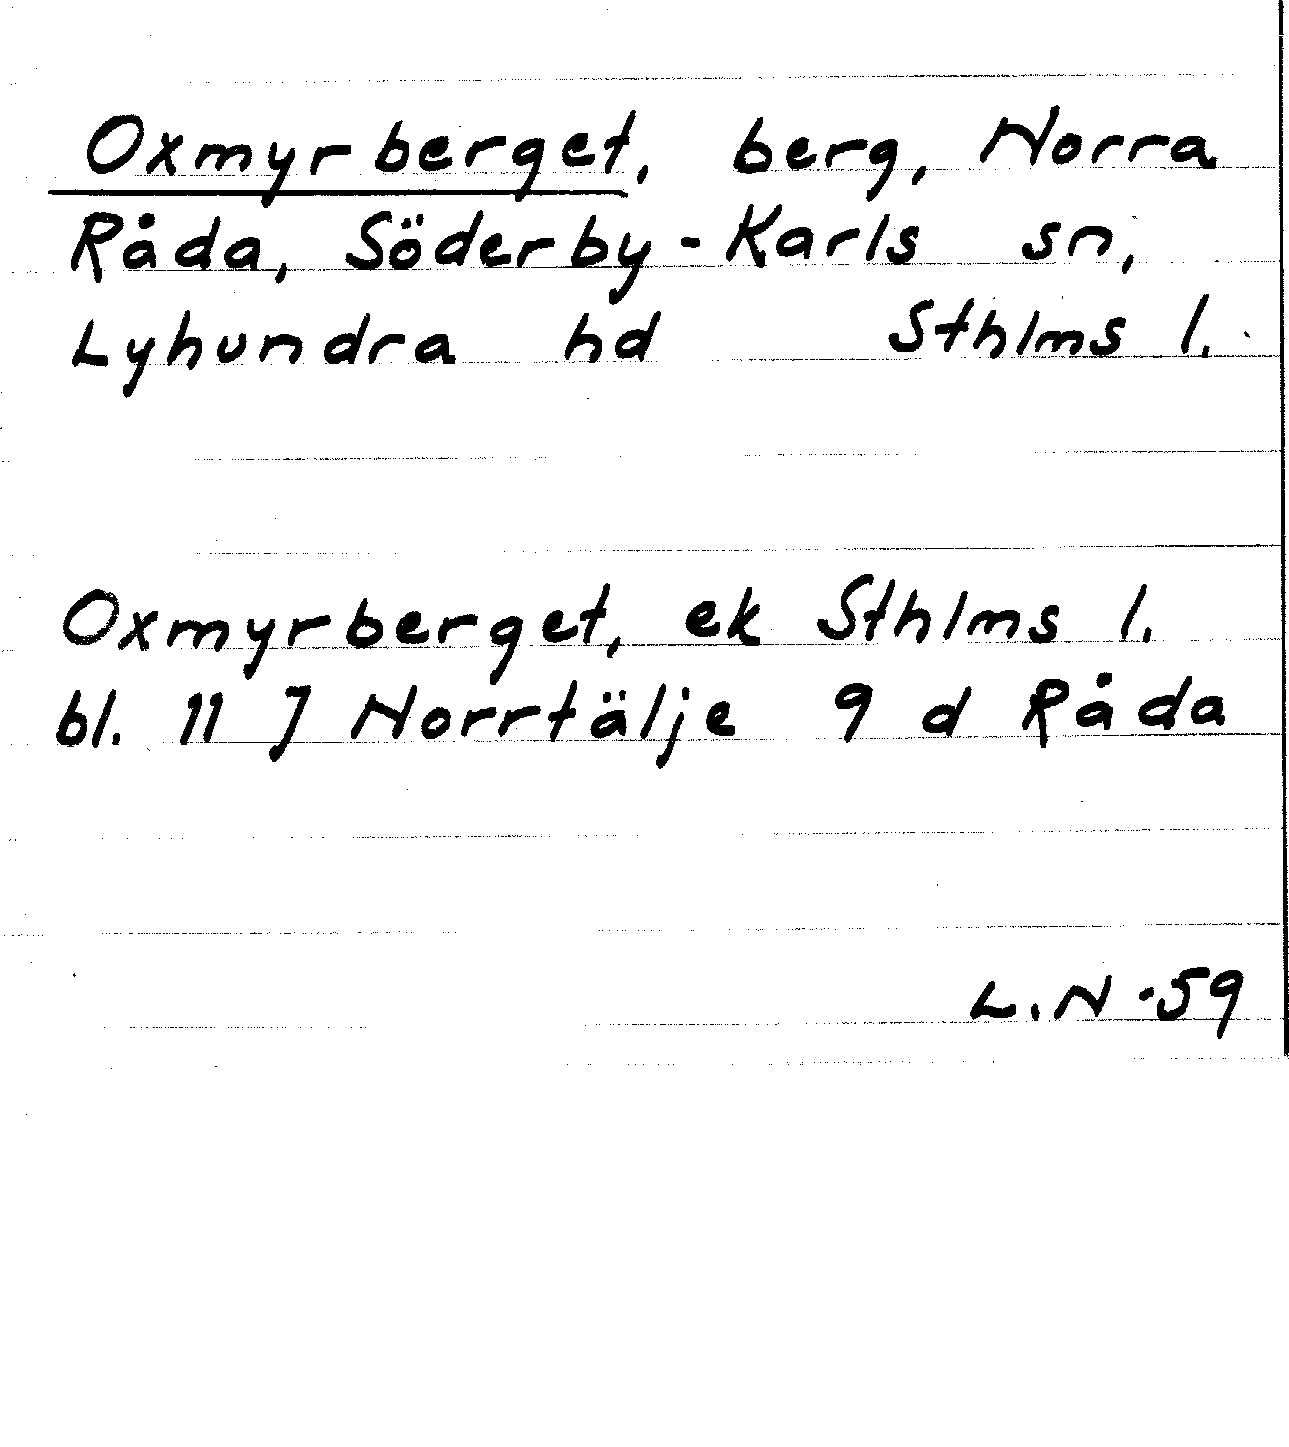 Oxmyrberget, berg, Norra
Råda, Söderby-Karls sn,
Lyhundra hd Sthlms l.
Oxmyrberget, ek Sthlms l.
bl. 11 J Norrtälje 9 d Råda
L.N -59